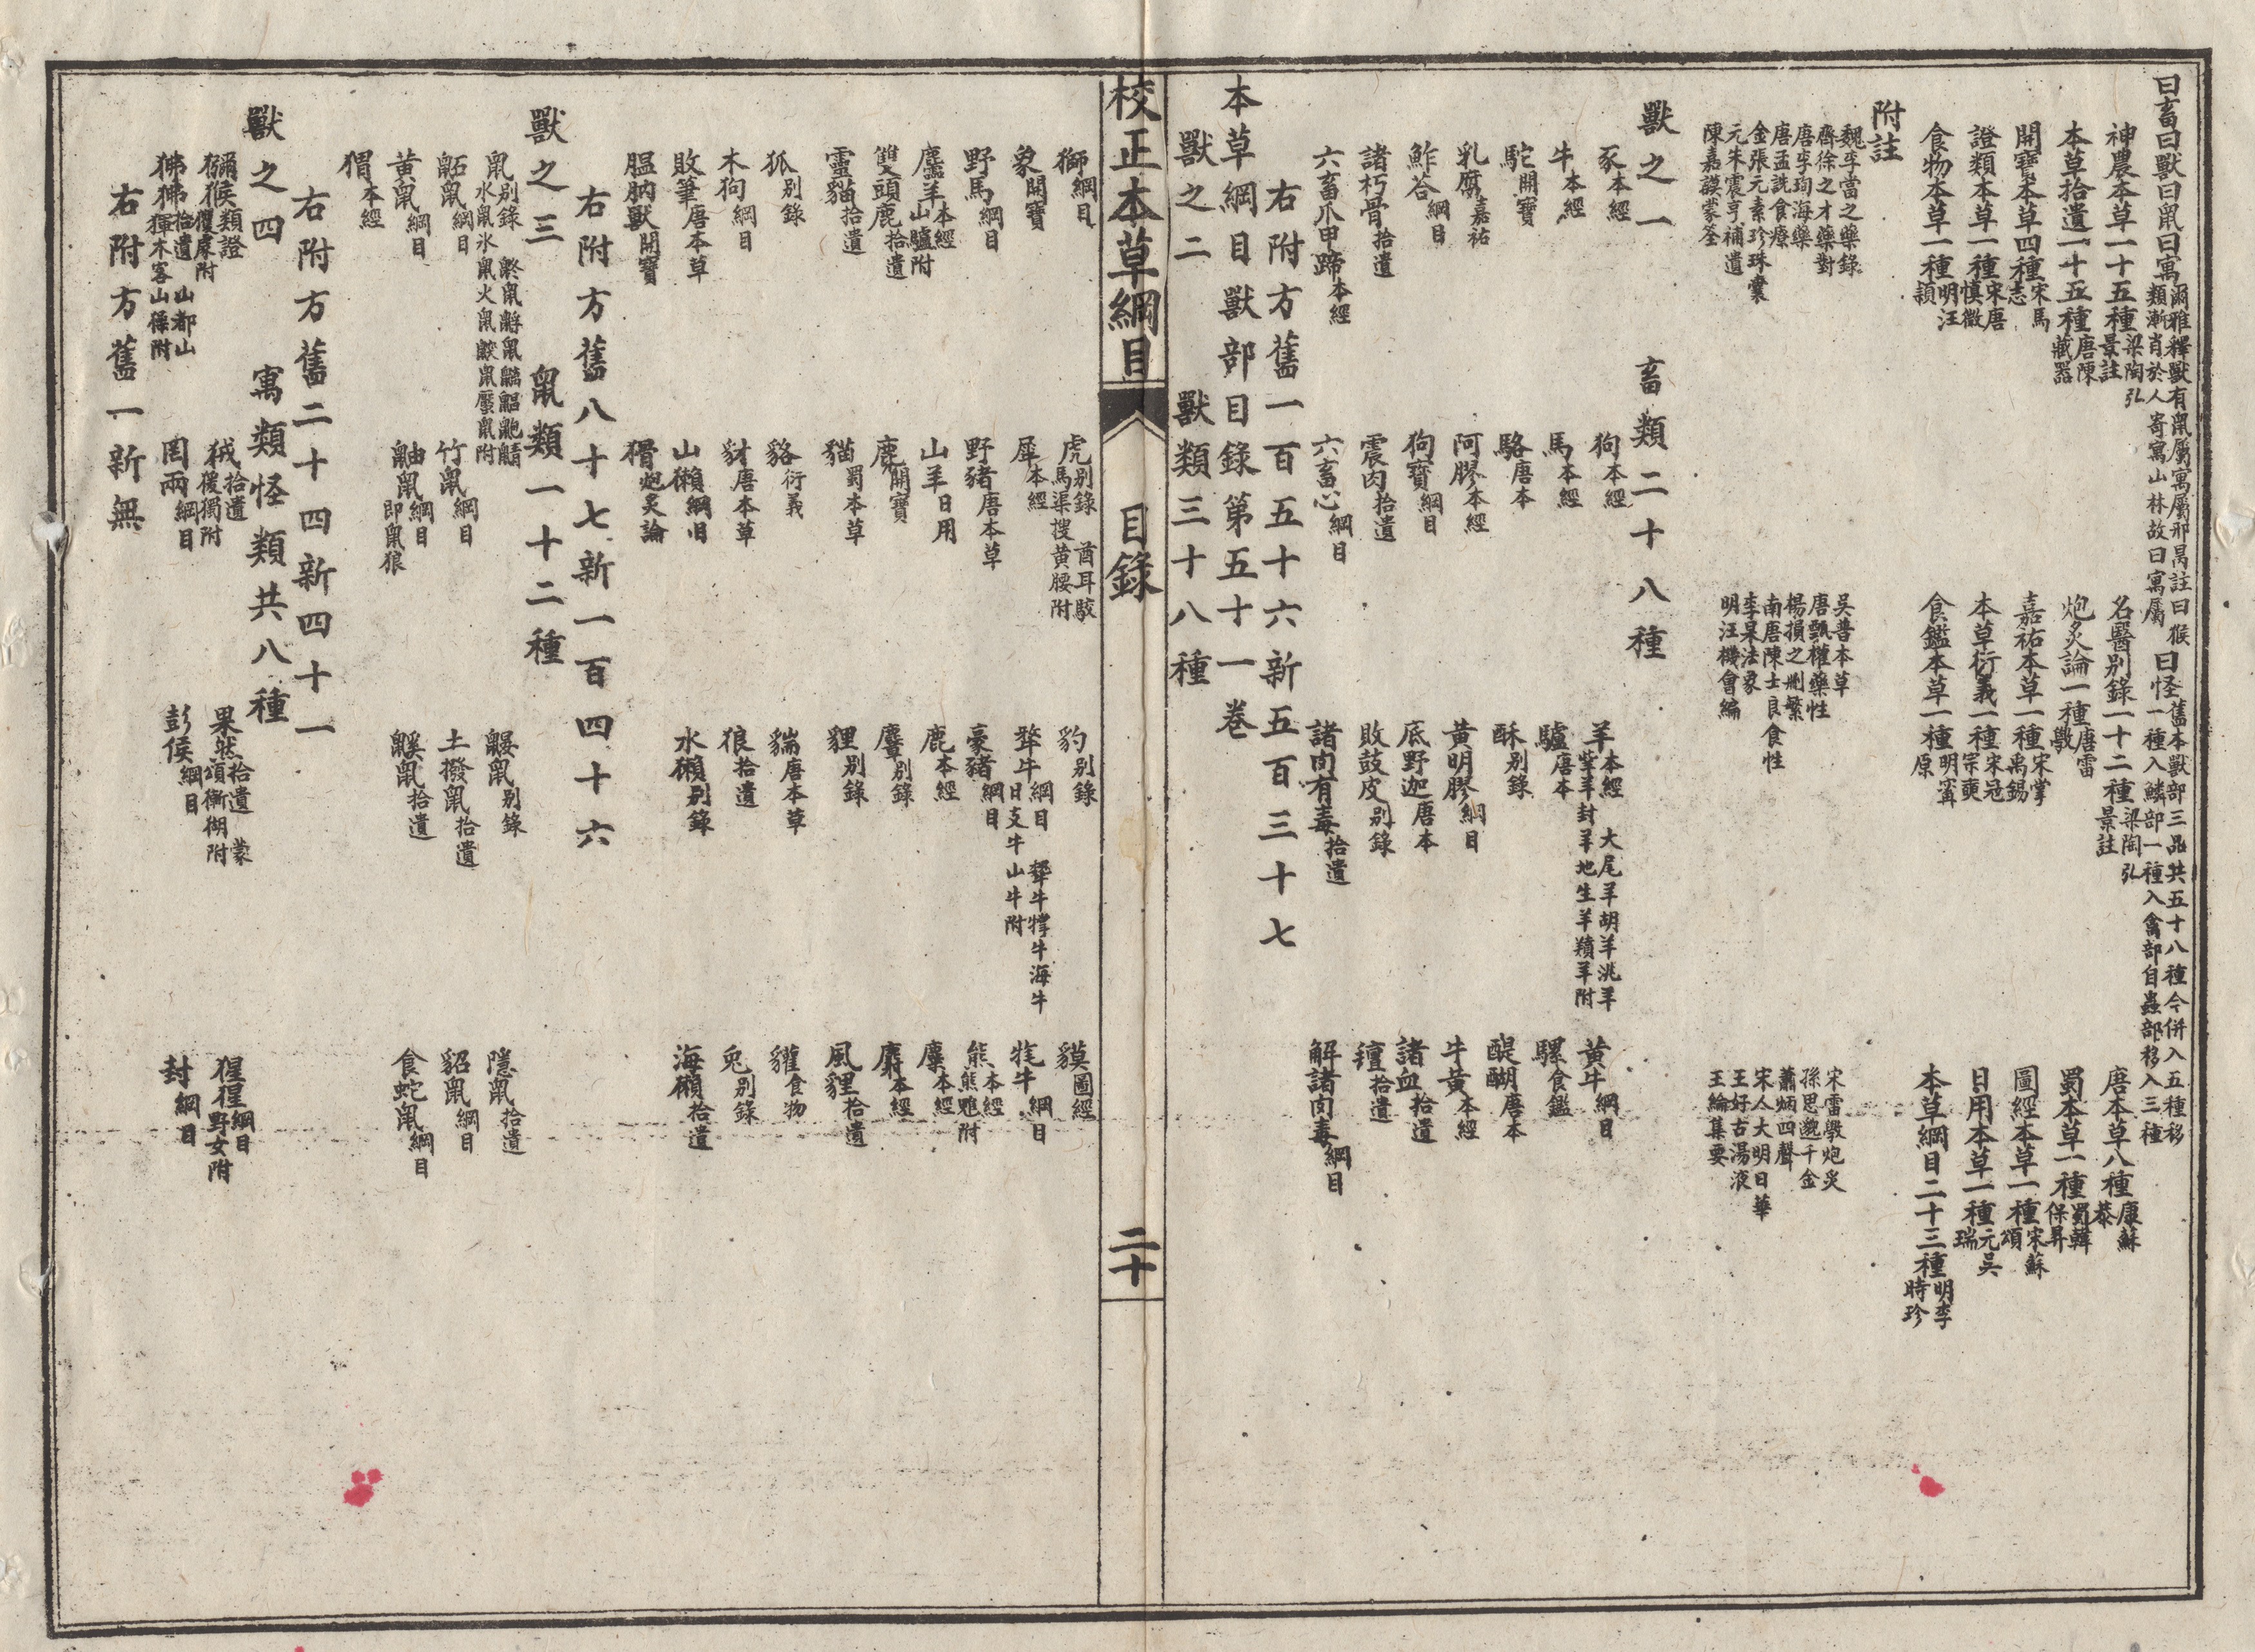 曰畜曰獸曰鼠曰寓爾雅釋獸有鼠屬寓屬邢昺註曰猴類漸肖於人寄寓山林故曰寓屬曰怪舊本獸部三品共五十八種今併入五種移一種入鱗部一種入禽部自蟲部移入三種
神農本草一十五種梁陶弘景註 名醫別錄一十二種梁陶弘景註 唐本草八種唐蘇恭
本草拾遺一十五種唐陳藏器 炮炙論一種唐雷斅 蜀本草一種蜀韓保昇
開寶本草四種宋馬志 嘉祐本草一種宋掌禹錫 圖經本草一種宋蘇頌
證類本草一種宋唐慎微 本草衍義一種宋寇宗奭 日用本草一種元吳瑞
食物本草一種明汪穎 食鑑本草一種明甯原 本草綱目二十三種明李時珍
附註
魏李當之藥錄 吳普本草 宋雷斅炮炙
齊徐之才藥對 唐甄權藥性 孫思邈千金
唐李珣海藥 楊損之刪繁 蕭炳四聲
唐孟詵食療 南唐陳士良食性 宋人大明日華
金張元素珍珠囊 李杲法象 王好古湯液
元朱震亨補遺 明汪機會編 王綸集要
陳嘉謨蒙筌
獸之一 畜類二十八種
豕本經 狗本經 羊本經 大尾羊胡羊洮羊䍽羊封羊地生羊羵羊附 黃牛綱目
牛本經 馬本經 驢唐本 騾食鑑
駝開寶 駱唐本 酥別錄 醍醐唐本
乳腐嘉祐 阿膠本經 黃明膠綱目 牛黃本經
鮓荅綱目 狗寶綱目 底野迦唐本 諸血拾遺
諸朽骨拾遺 震肉拾遺 敗鼓皮別錄 氈拾遺
六畜爪甲蹄本經 六畜心綱目 諸肉有毒拾遺 解諸肉毒綱目
右附方舊一百五十六新五百三十七
本草綱目獸部目錄第五十一卷
獸之二 獸類三十八種
校正本草綱目 目錄 二十
獅綱目 虎別錄 酋耳駮馬渠搜黃腰附 豹別錄 貘圖經
象開寶 犀本經 犛牛綱目 犛牛犩牛海牛月支牛山牛附 牦牛綱目
野馬綱目 野豬唐本草 豪豬綱目 熊本經熊羆附
麢羊本經山驢附 山羊日用 鹿本經 麋本經
雙頭鹿拾遺 麂開寶 麞別錄 麝本經
靈貓拾遺 貓蜀本草 貍別錄 風貍拾遺
狐別錄 貉衍義 貒唐本草 貛食物
木狗綱目 豺唐本草 狼拾遺 兔別錄
敗筆唐本草 山獺綱目 水獺別錄 海獺拾遺
膃肭獸開寶 猾炮炙論
右附方舊八十七新一百四十六
獸之三 鼠類一十二種
鼠別錄 水鼠冰鼠火鼠鼤鼠鼷鼠附 鼹鼠別錄 隱鼠拾遺
鼫鼠綱目 竹鼠綱目 土撥鼠拾遺 貂鼠綱目
黃鼠綱目 鼬鼠綱目即鼠狼 鼷鼠拾遺 食蛇鼠綱目
猬本經
右附方舊二十四新四十一
獸之四 寓類怪類共八種
獼猴證類玃豦附 狨拾遺猨獨附 果然拾遺 蒙頌猢附 猩猩綱目野女附
狒狒拾遺 山都山㺐木客山𤟤附 罔兩綱目 彭侯綱目 封綱目
右附方舊一新無